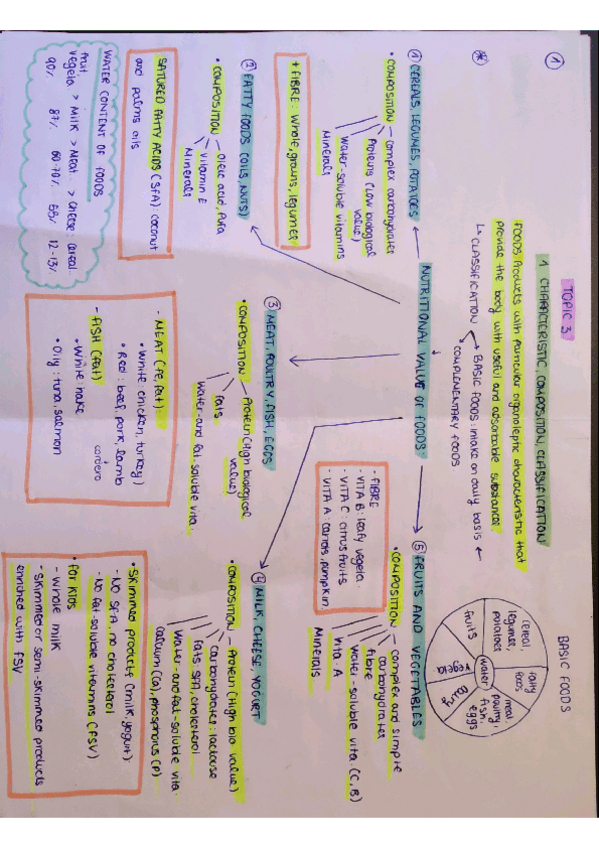 ①
TOPIC 3.
1 CHARACTERISTIC, COMPOSITION, CLASSIFICATION
FOODS Products with particular organoleptic characteristic that
provide the body with useful and adsorbable substances.
↳ CLASSIFICATION
BASIC FOODS: intake on daily basis
COMPLEMENTARY FOODS
BASIC FOODS
cereal,
legumes,
potatoes
fatty
foods
meat
poultry,
fish,
eggs
dairy
vegeta
fruits
water
NUTRITIONAL VALUE OF FOODS
① CEREALS, LEGUMES, POTATOES
• COMPOSITION – complex carbohydrates
Proteins (low biological
value)
water-soluble vitamins
Minerals
+ FIBRE: Whole, grains, legumes
② FATTY FOODS (OILS, NUTS)
• COMPOSITION – oleic acid, Pufa
vitamin E
Minerals
SATURED FATTY ACIDS (SFA) coconut
and palms oils
WATER CONTENT OF FOODS
fruit
vegeta > Milk > Meat > Cheese: cereal
90% 87% 60-70% 55% 12-13%
③ MEAT, POULTRY, FISH, EGGS
• COMPOSITION – Protein (High biological
value)
fats
water-and fat-soluble vita
- MEAT (fe, fat):
• White: chicken, turkey)
• Red: beef, pork, lamb
cordero
- FISH (fat)
• White: hake
• Oily: tuna, salmon
④ MILK, CHEESE, YOGURT
• COMPOSITION – Protein (High bio value)
carbohydrates: lactose
fats: SFA, cholesterol
Water-and fat-soluble vita
calcium (Ca), phosphorus (P)
• Skimmed products (milk, yogurt):
- NO SFA, no cholesterol
- NO fat-soluble vitamins (FSV)
• For kids
- whole milk
- skimmed or semi-skimmed products
enriched with FSV
⑤ FRUITS AND VEGETABLES
• COMPOSITION – complex and simple
carbohydrates
fibre
water-soluble vita (C, B)
Vita. A
Minerals
- FIBRE
- VITA B: leafy vegeta.
- VITA C: citrus fruits
- VITA A: carrots, pumpkin